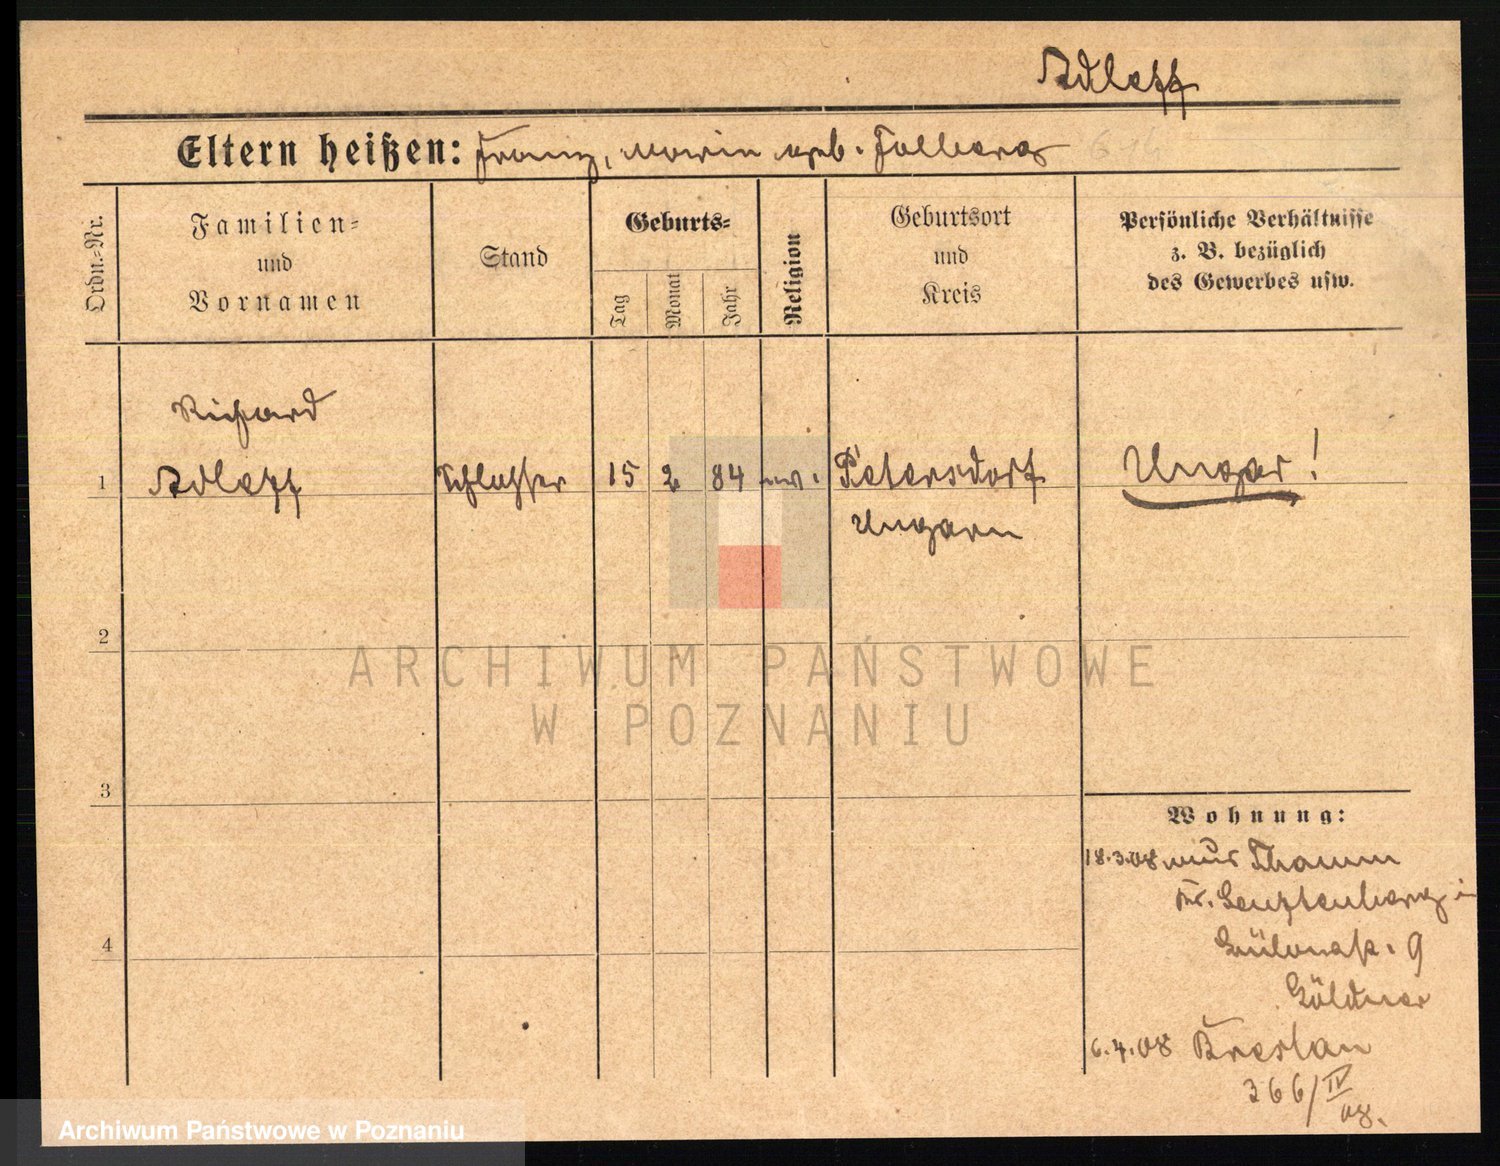 Adleff
Eltern heißen: Franz, Maria geb. Folberg
Ordn.-Nr.
Familien-
und
Vornamen
Stand
Geburts-
Tag
Monat
Jahr
Religion
Geburtsort
und
Kreis
Persönliche Verhältnisse
z. B. bezüglich
des Gewerbes usw.
Richard
1 Adleff Schlosser 15 2 84 Petersdorf Ungar!
Ungarn
2
3
4
Wohnung:
18.3.08 aus Thamm
Kr.
9
Göldner
6.4.08 Breslau
366/IV
08.
ARCHIWUM PAŃSTWOWE
W POZNANIU
Archiwum Państwowe w Poznaniu